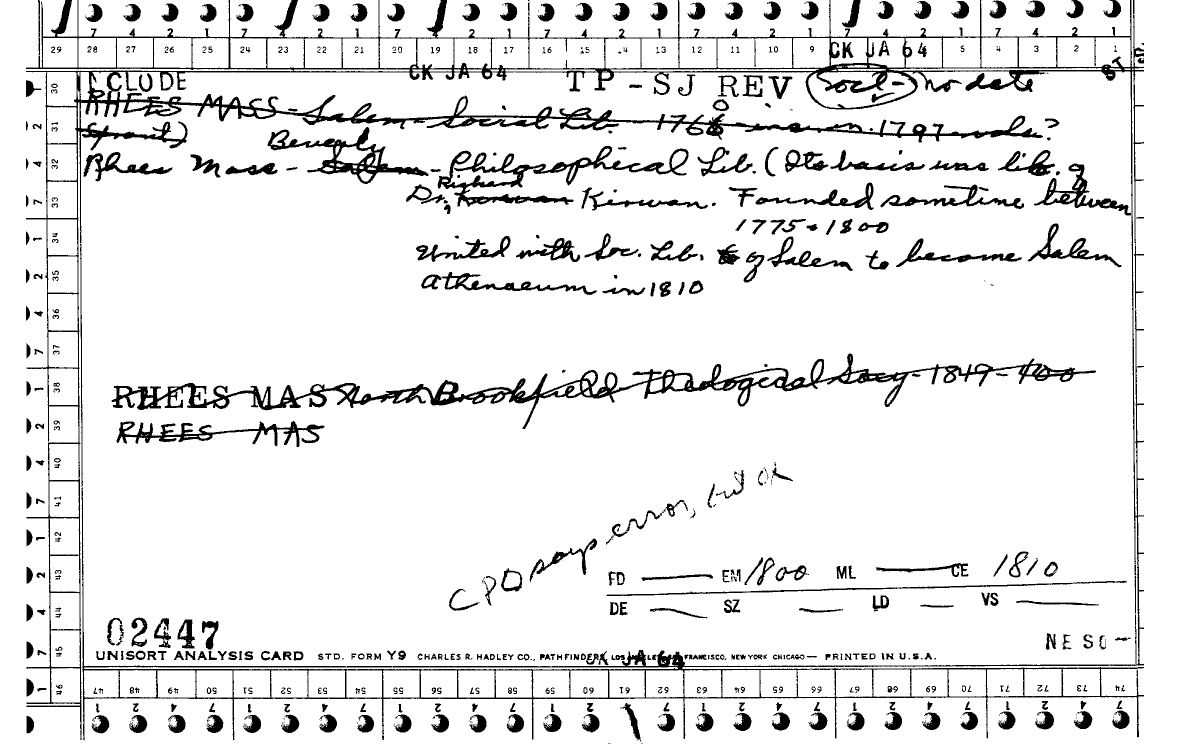 7 4 2 1 7 4 2 1 7 4 2 1 7 4 2 1 7 4 2 1 7 4 2 1 7 4 2 1
29 28 27 26 25 24 23 22 21 20 19 18 17 16 15 14 13 12 11 10 9 CK JA 64 5 4 3 2 1
INCLUDE CK JA 64 TP - SJ REV Socl- no date
RHEES MASS - Salem - Social Lib. - 1760 - 1797 vols?
Beverly
Rhees Mass - Salem - Philosophical Lib. (Its basis was lib. of
Dr. Richard Kirwan. Founded sometime between
1775 + 1800
United with Soc. Lib. of Salem to become Salem
Athenaeum in 1810
RHEES MAS North Brookfield Theological Socy - 1849 - 400
RHEES MAS
CPD says error, but ok
FD — EM 1800 ML — CE 1810
DE — SZ — LD — VS —
02447
NE SO -
UNISORT ANALYSIS CARD STD. FORM Y9 CHARLES R. HADLEY CO., PATHFINDERS, LOS ANGELES SAN FRANCISCO, NEW YORK CHICAGO — PRINTED IN U.S.A.
CK JA 64
30 31 32 33 34 35 36 37 38 39 40 41 42 43 44 45 46
47 48 49 50 51 52 53 54 55 56 57 58 59 60 61 62 63 64 65 66 67 68 69 70 71 72 73 74